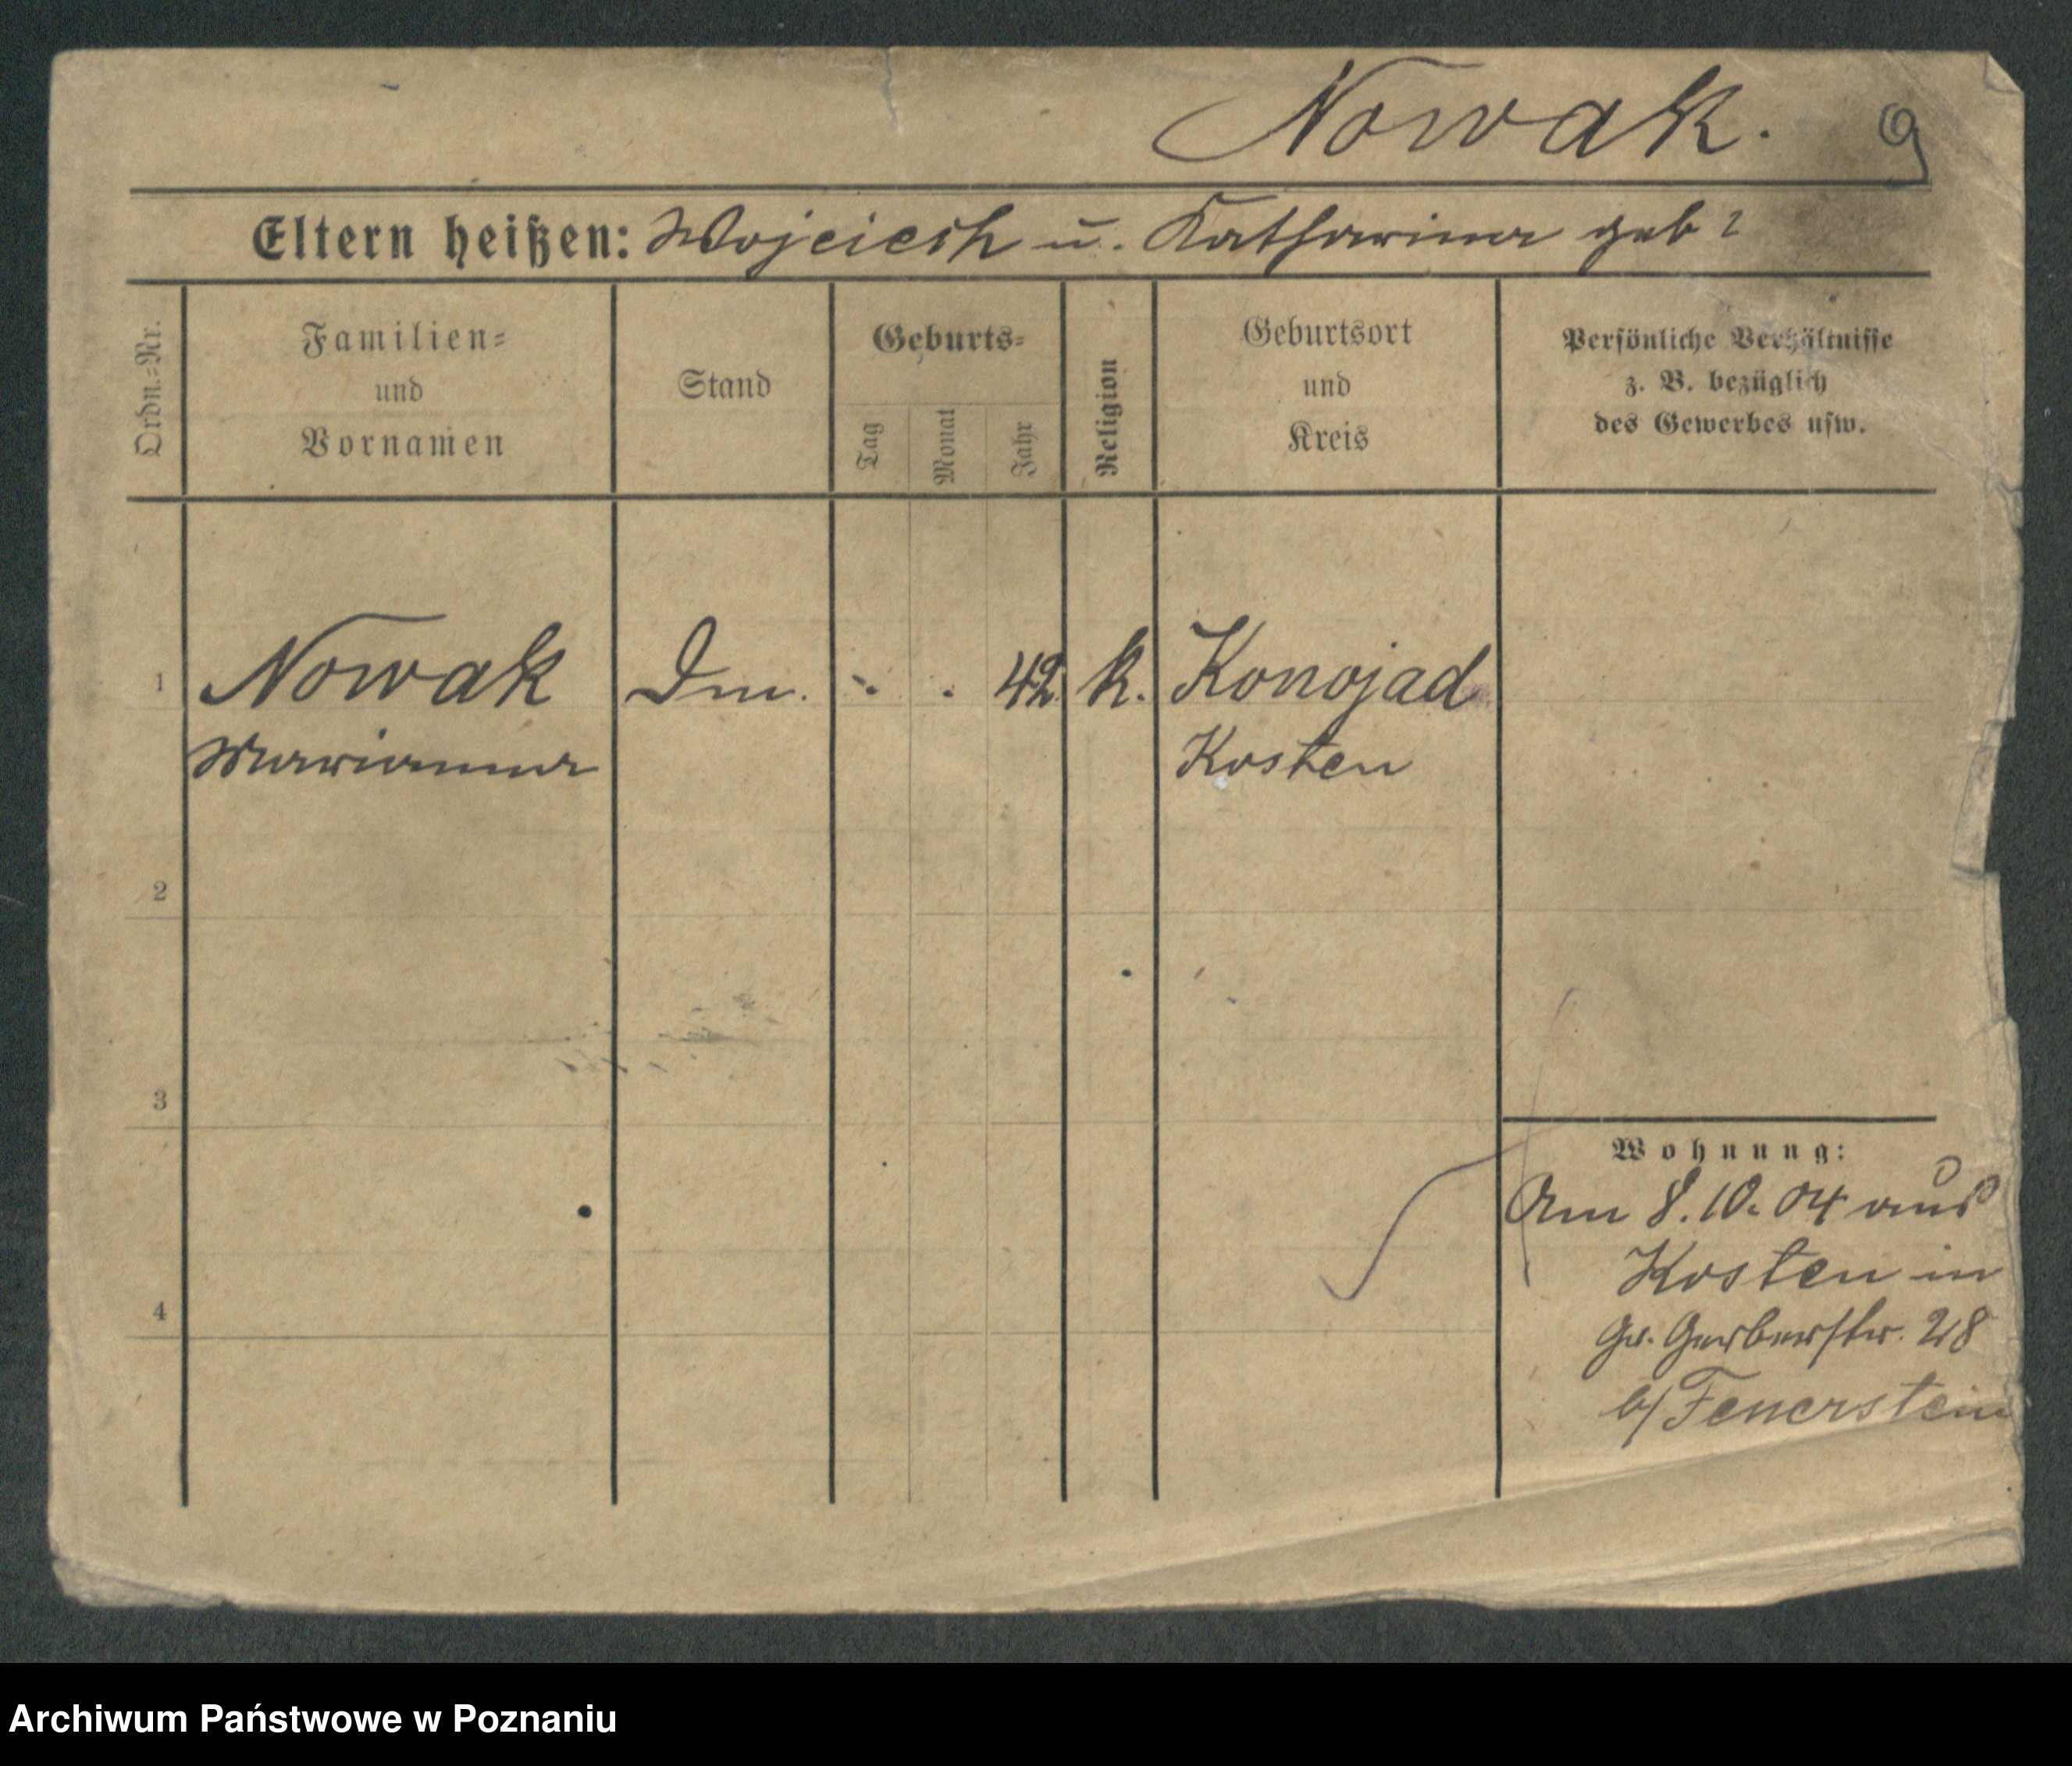 Nowak.
9
Eltern heißen: Wojciech u. Katharina geb?
Ordn.=Nr.
Familien=
und
Vornamen
Stand
Geburts=
Tag
Monat
Jahr
Religion
Geburtsort
und
Kreis
Persönliche Verhältnisse
z. B. bezüglich
des Gewerbes usw.
1 Nowak - . 42 k. Konojad
Marianna Kosten
2
3
4
Wohnung:
Am 8.10.04 aus
Kosten in
Gr. Gerberstr. 28
b/Feuerstein
Archiwum Państwowe w Poznaniu